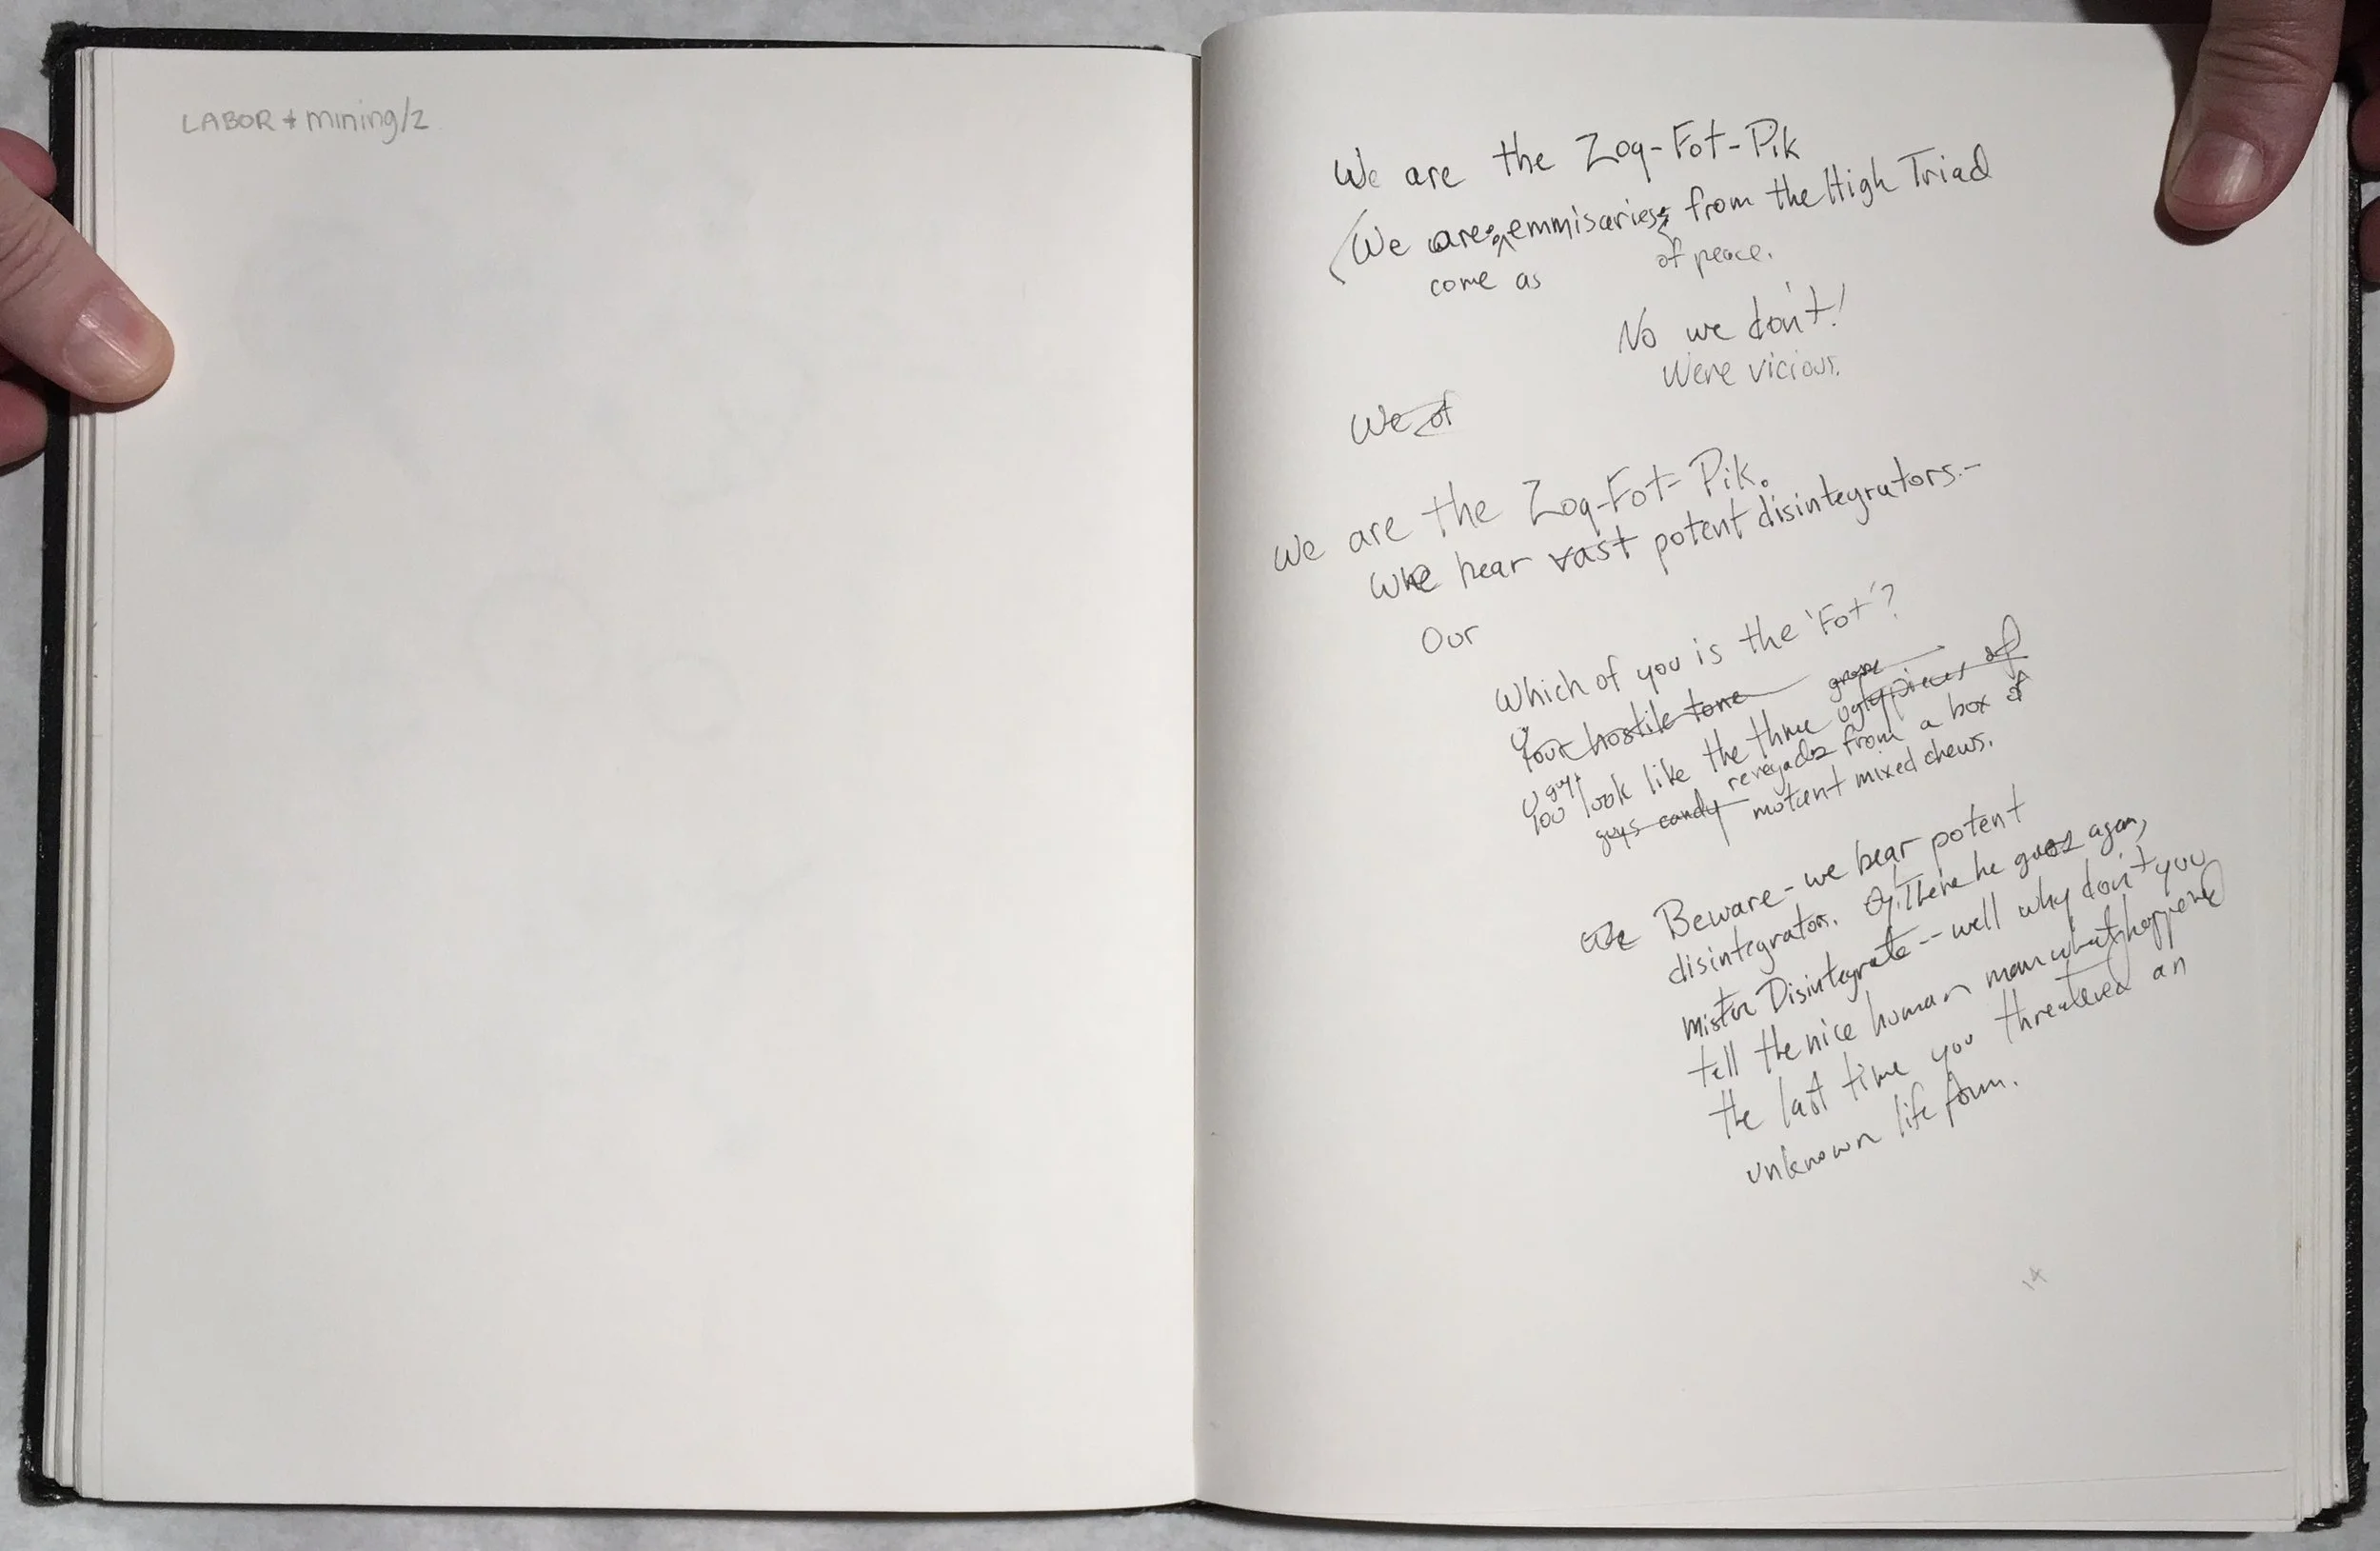 LABOR + mining/2
We are the Zoq-Fot-Pik
We are emmisaries from the High Triad
come as of peace.
No we don't!
We're vicious.
We of
We are the Zoq-Fot-Pik.
We bear vast potent disintegrators.-
Our
Which of you is the 'Fot'?
Your hostile tone
gross
You guys look like the three ugly pieces of
renegades from a box of
guys candy mutant mixed chews.
We Beware - we bear potent
disintegrators. There he goes again,
mister Disintegrate -- well why don't you
tell the nice human man what happened
the last time you threatened an
unknown life form.
14